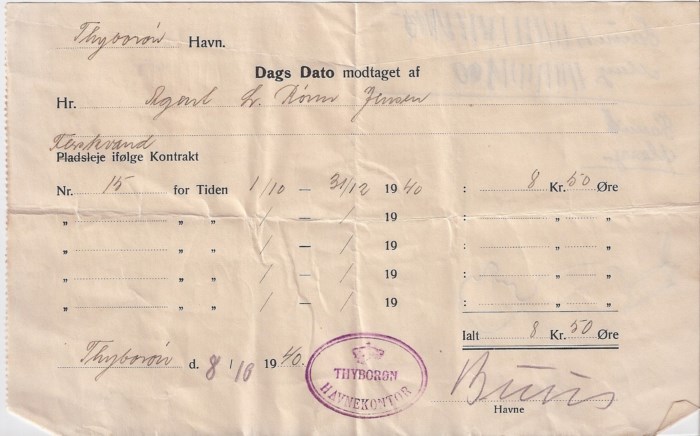 Thyborøn Havn.
Dags Dato modtaget af
Hr. Agent Chr. Rønn Jensen
Ferskvand
Pladsleje ifølge Kontrakt
Nr. 15 for Tiden 1/10 — 31/12 1940 : 8 Kr. 50 Øre
„ „ „ / — / 19 : „ „
„ „ „ / — / 19 : „ „
„ „ „ / — / 19 : „ „
„ „ „ / — / 19 : „ „
Ialt 8 Kr. 50 Øre
Thyborøn d. 8/10 1940.
THYBORØN
HAVNEKONTOR
Buus
Havne